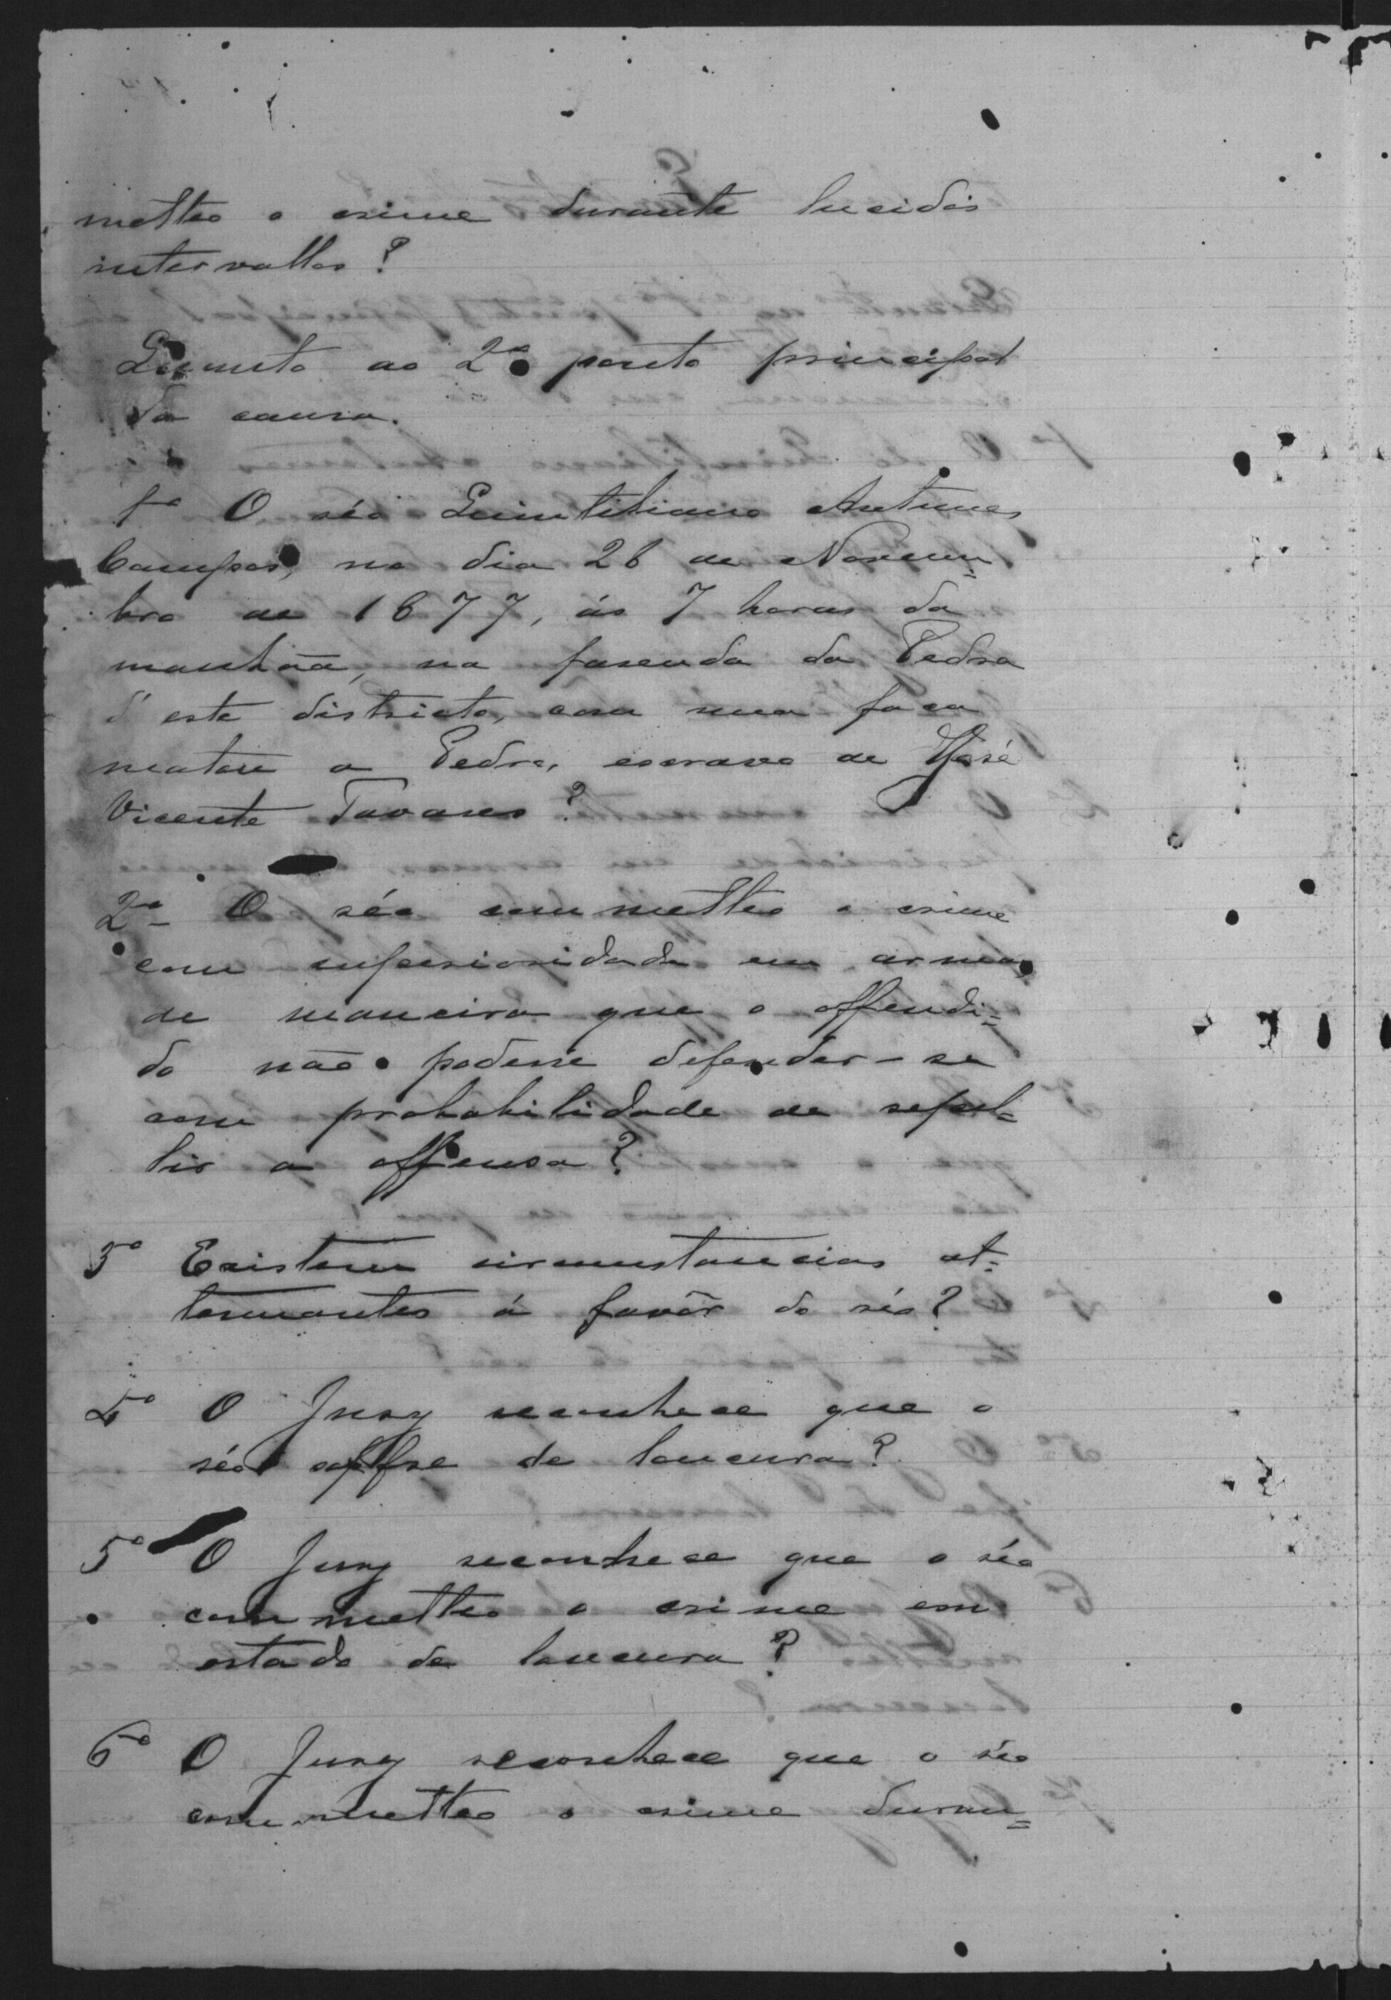 metteo o crime durante lucidos
intervallos?
Quanto ao 2º ponto principal
da causa.
1º O réo Quintiliano Antunes
Campos, no dia 26 de Novem=
bro de 1877, ás 7 horas da
manhãa, na fasenda da Pedra
d'este districto, com uma faca
matou a Pedro, escravo de José
Vicente Tavares?
2º O réo commetteo o crime
com superioridade em armas
de maneira que o offendi=
do não podesse defender-se
com probabilidade de repel=
lir a offensa?
3º Existem circumstancias at=
tenuantes á favôr do réo?
4º O Jury reconhece que o
réo soffre de loucura?
5º O Jury reconhece que o réo
commetteo o crime em
estado de loucura?
6º O Jury reconhece que o réo
commetteo o crime duran=